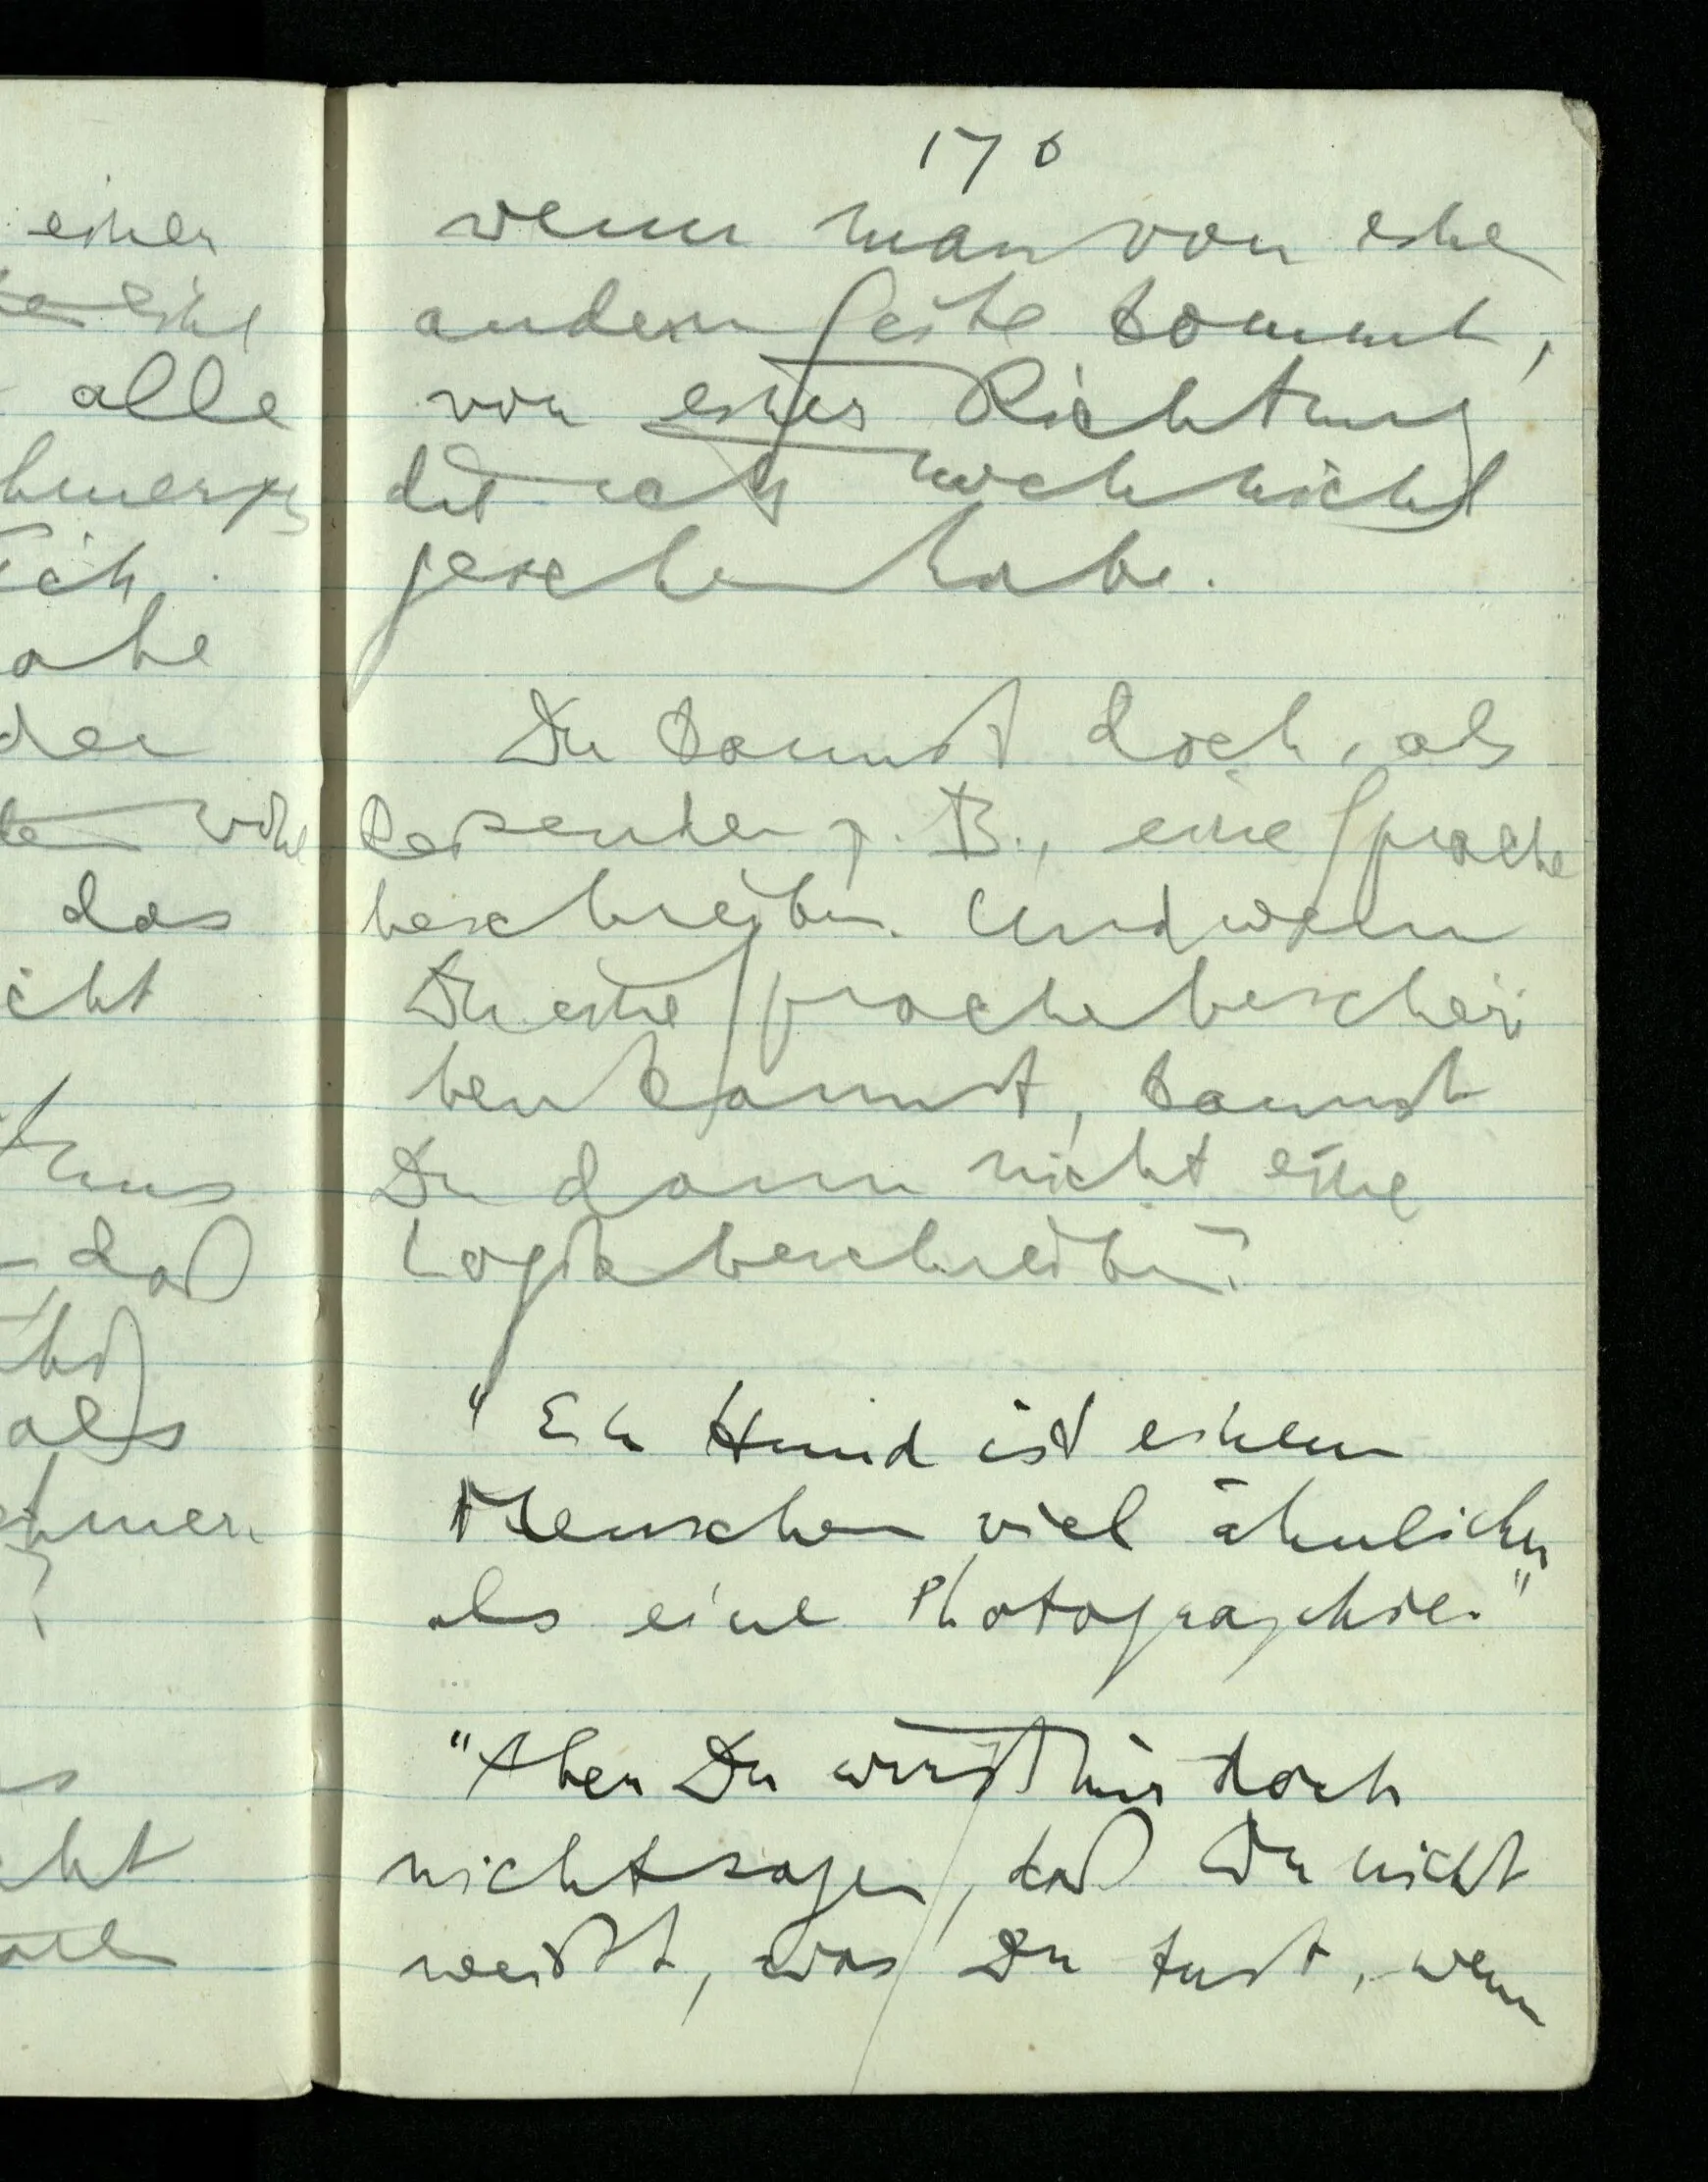 einen
alle
ich.
der
das
icht
daß
als
170
wenn man von eine
andern Seite kommt,
von einer Richtung
die ich noch nicht
gesehen habe.
Du kannst doch, als
Reisender z. B., eine Sprache
beschreiben. Und wenn
Du eine Sprache beschrei
ben kannst, kannst
Du dann nicht eine
Logik beschreiben?
"Ein Hund ist einem
Menschen viel ähnlicher
als eine Photographie."
"Aber Du wirst mir doch
nicht sagen, daß Du nicht
weißt, was Du tust, wenn